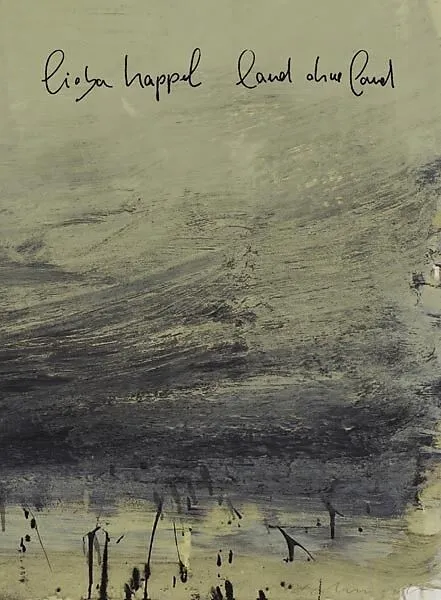 lioba happel land ohne land